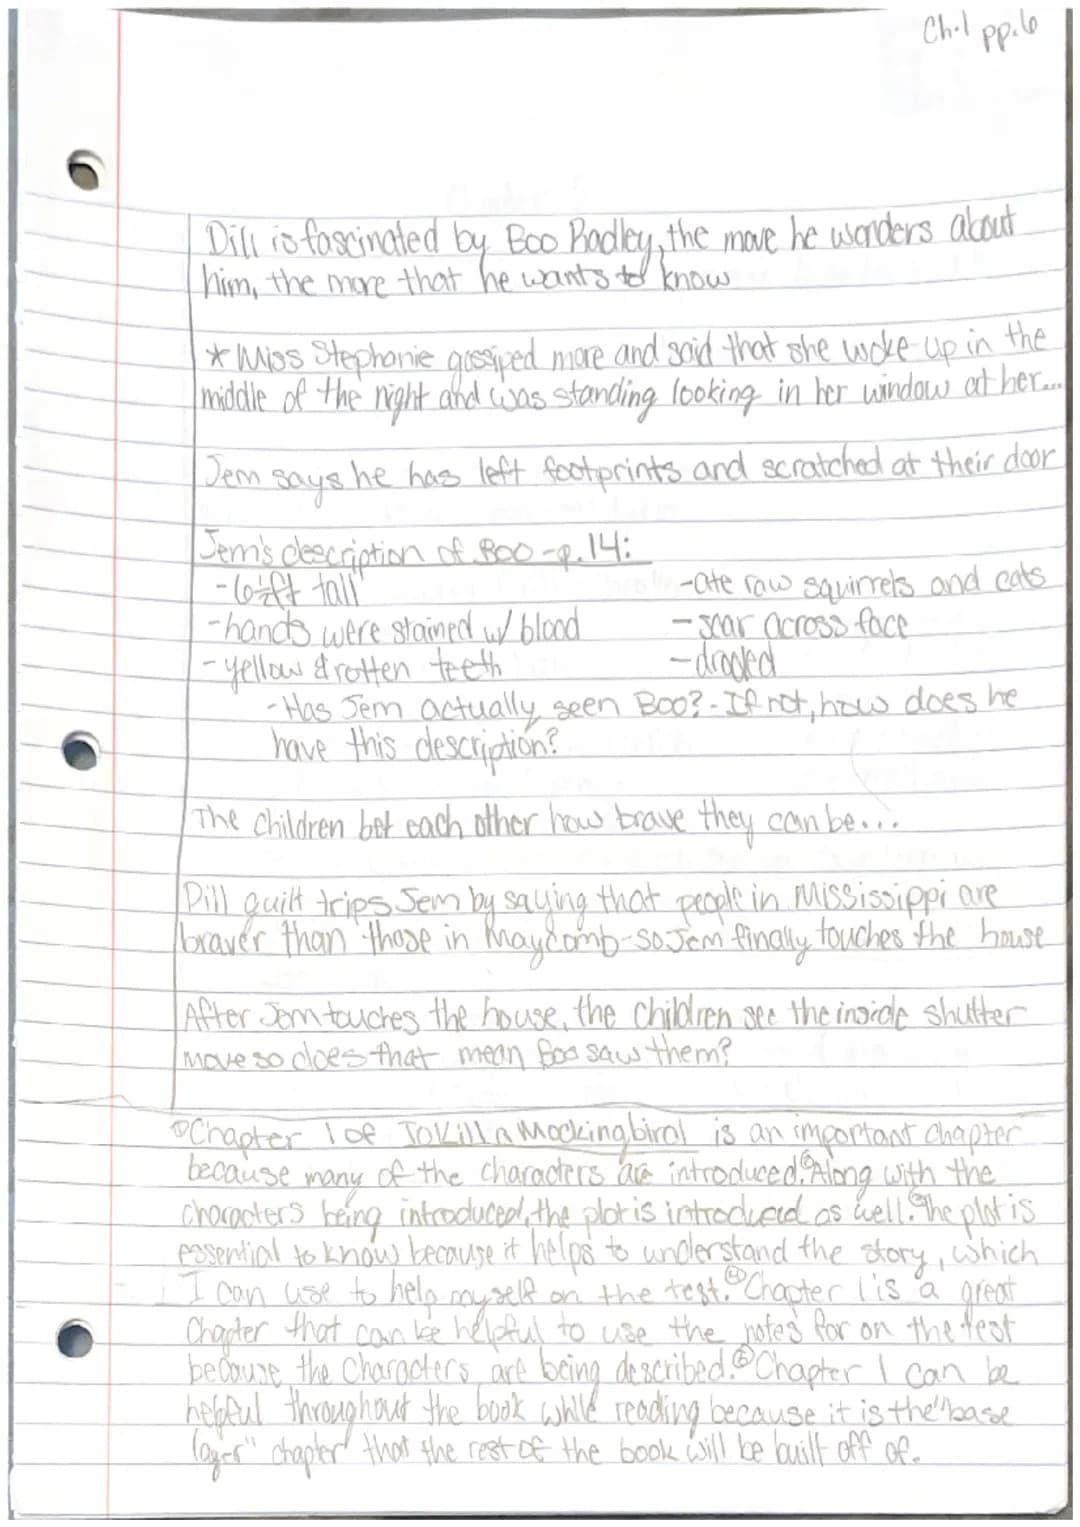 Ch.1 pp.6
Dill is fascinated by Boo Radley, the more he wonders about
him, the more that he wants to know
* Miss Stephanie gossiped more and said that she woke up in the
middle of the night and was standing looking in her window at her...
Jem says he has left footprints and scratched at their door
Jem's description of Boo -p.14:
-6½ft tall -ate raw squirrels and cats
-hands were stained w/ blood -scar across face
-yellow & rotten teeth -drooled
-Has Jem actually seen Boo?-If not, how does he
have this description?
The children bet each other how brave they can be...
Dill guilt trips Jem by saying that people in Mississippi are
braver than those in Maycomb-so Jem finally touches the house
After Jem touches the house, the children see the inside shutter
move so does that mean Boo saw them?
①Chapter 1 of To Kill A Mockingbird is an important chapter
because many of the characters are introduced.②Along with the
characters being introduced, the plot is introduced as well.③The plot is
essential to know because it helps to understand the story, which
I can use to help myself on the test.④Chapter 1 is a great
Chapter that can be helpful to use the notes for on the test
because the characters are being described.⑤Chapter 1 can be
helpful throughout the book while reading because it is the "base
layer" chapter that the rest of the book will be built off of.